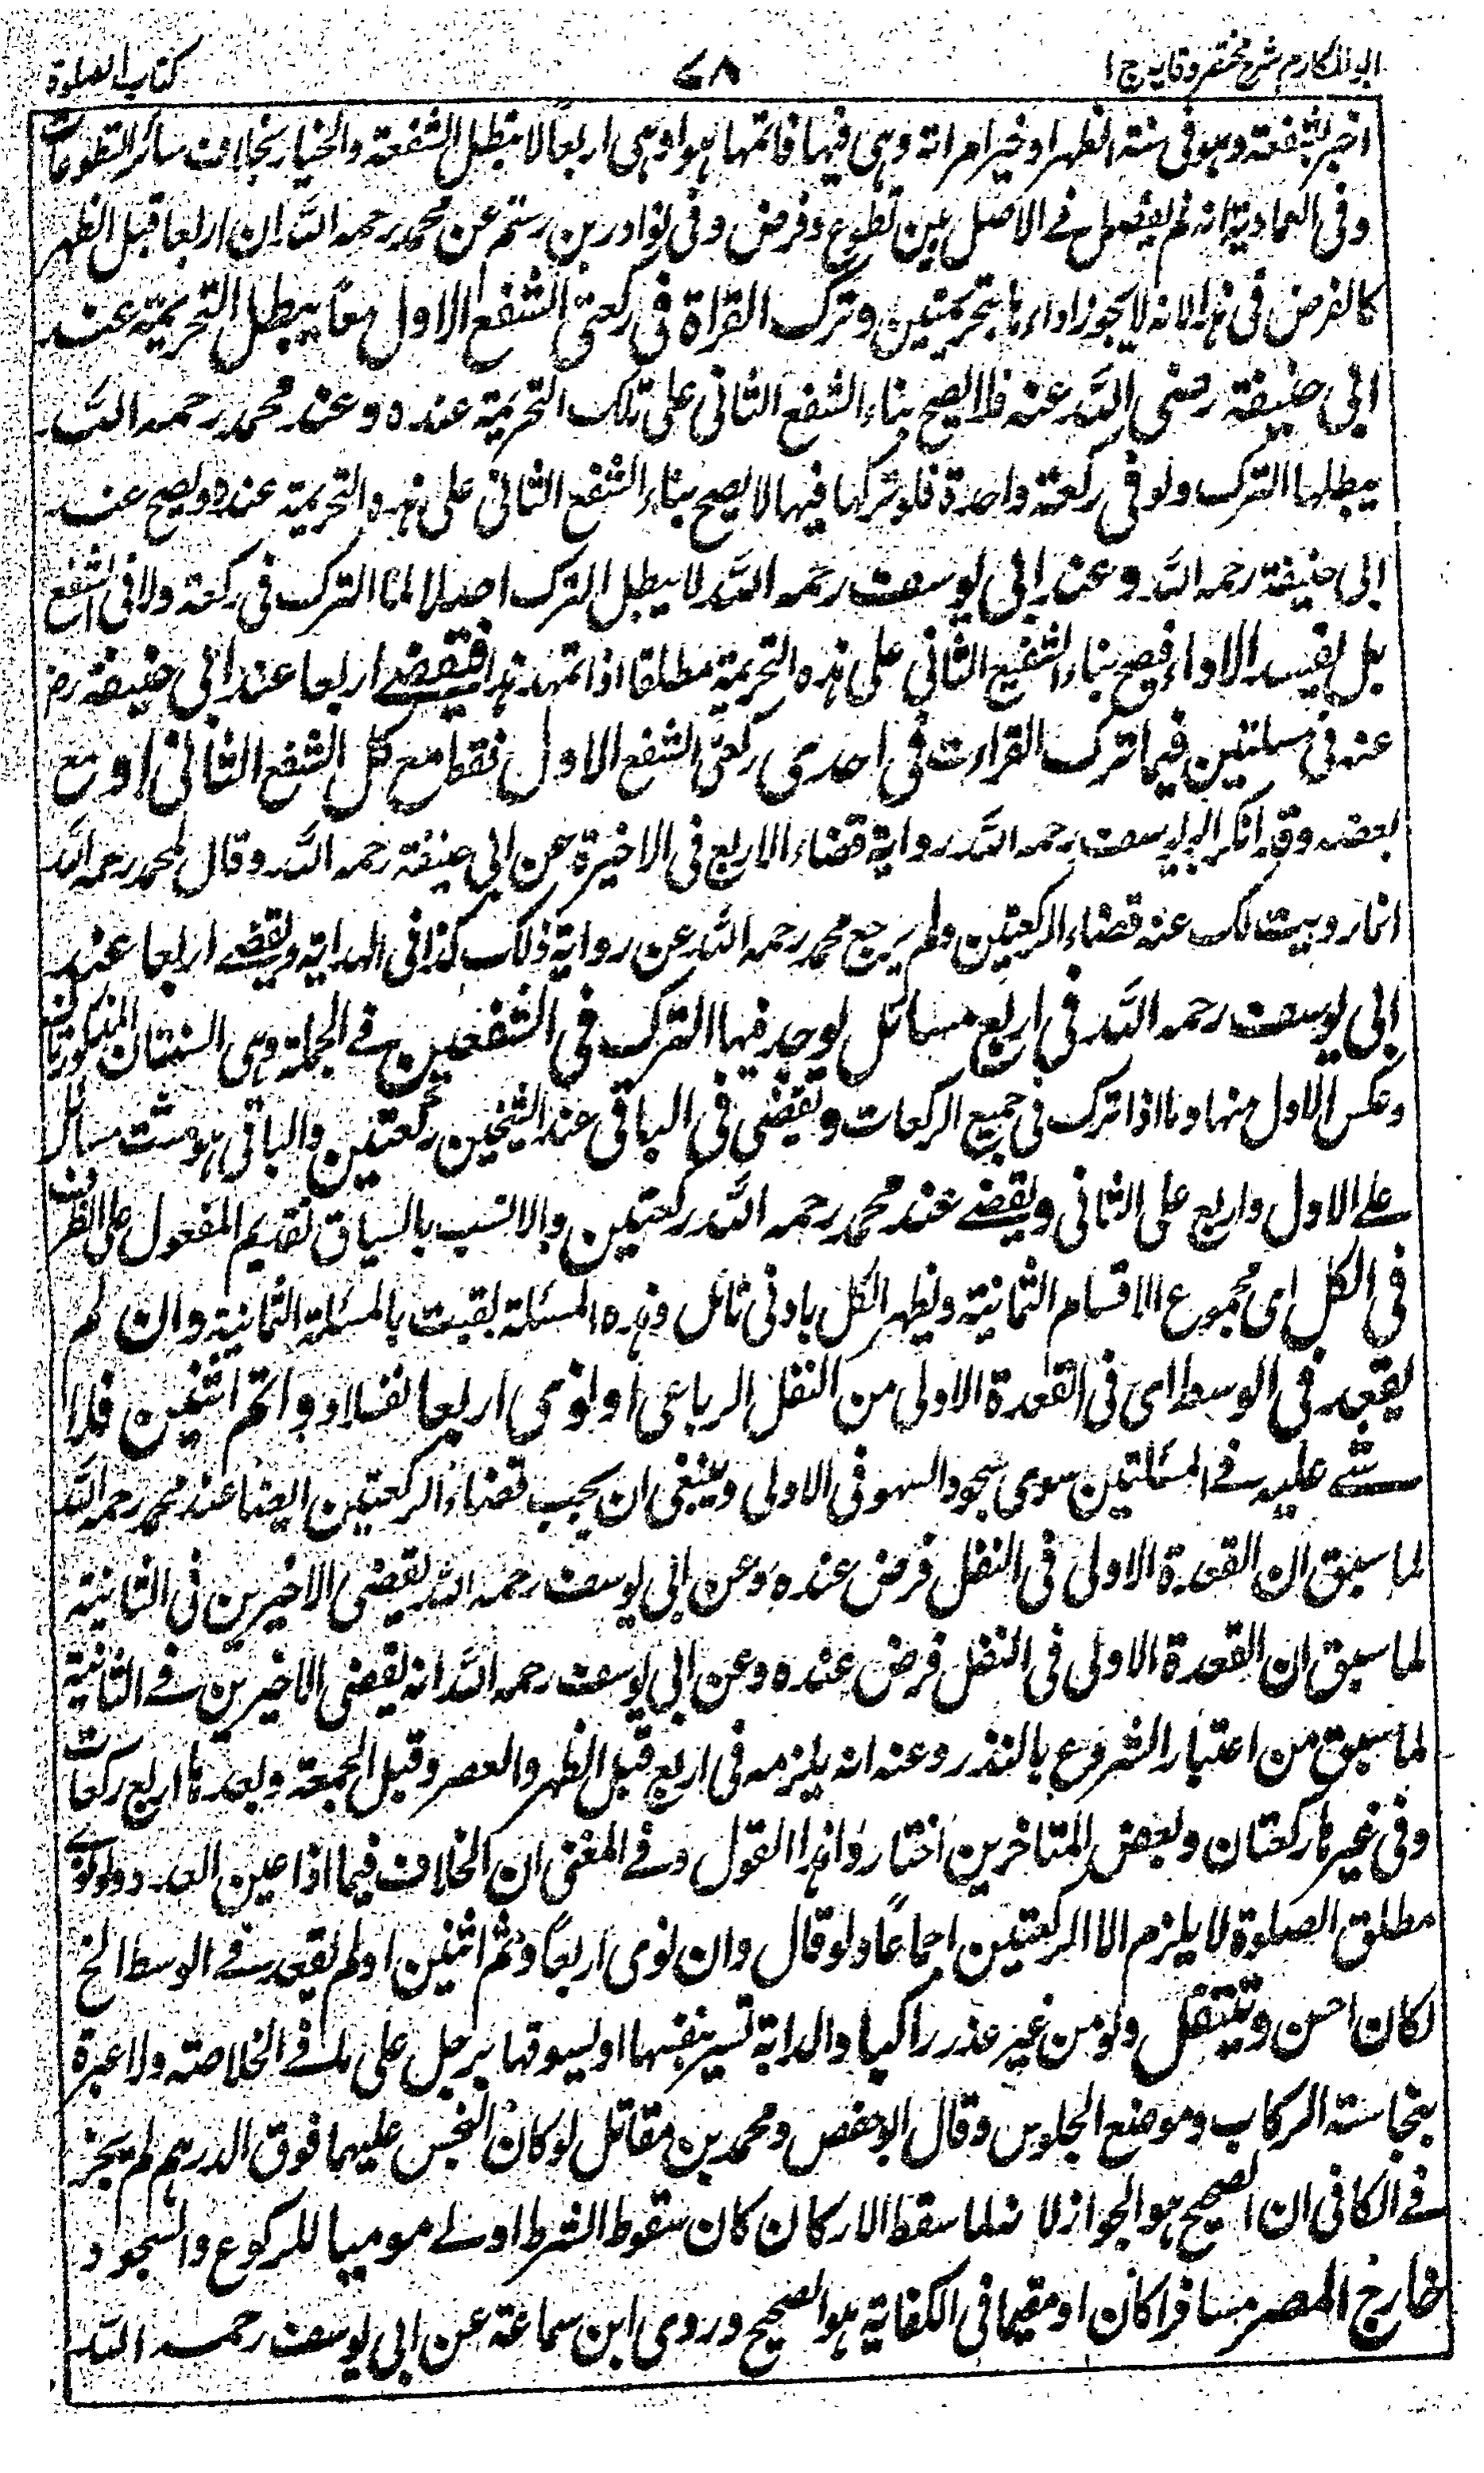 ابو المکارم شرح مختصر وقایہ ج ۱
۷۸
کتاب الصلوة
اخبر بشفعة وهو فى سنة الظهر او خير امراته وهى فيها فاتمها هو او هى اربعا لا تبطل الشفعة والخيار بخلاف سائر التطوعات
وفى العمادية انه لم يفصل فے الاصل بين تطوع وفرض وفى نوادر بن رستم عن محمد رحمه الله ان اربعا قبل الظهر
كالفرض فى هذا لانه لا يجوز اداءها بتحريمتين وترك القراة فى ركعتى الشفع الاول معا يبطل التحريمة عند
ابى حنيفة رضى الله عنه فلا يصح بناء الشفع الثانى على تلك التحريمة عنده وعند محمد رحمه الله
يبطلها الترك ولو فى ركعة واحدة فلو تركها فيها لا يصح بناء الشفع الثانى على هذه التحريمة عنده ويصح عند
ابى حنيفة رحمه الله وعند ابى يوسف رحمه الله لا يبطل الترك اصلا لا الترك فى ركعة ولا فى الشفع
بل يفسد الاداء فيصح بناء الشفع الثانى على هذه التحريمة مطلقا اذا تمهد هذا فيقضے اربعا عند ابى حنيفة رض
عنه فى مسلتين فيما ترك القراءت فى احدى ركعتى الشفع الاول فقط مع كل الشفع الثانى او مع
بعضه وقد انكر ابو يوسف رحمه الله رواية قضاء الاربع فى الاخيرة عن ابى حنيفة رحمه الله وقال لمحمد رحمه الله
انما رويت لك عنه قضاء الركعتين ولم يرجع محمد رحمه الله عن رواية ذلك كذا فى الهداية ويقضے اربعا عند
ابى يوسف رحمه الله فى اربع مسائل يوجد فيها الترك فى الشفعين فے الجملة وهى المسئلتان المذكورتان
وعكس الاول منها وما اذا ترك فى جميع الركعات ويقضى فى الباقى عند الشيخين ركعتين والباقى هو ست مسائل
علے الاول واربع على الثانى ويقضے عند محمد رحمه الله ركعتين والانسب بالسياق تقديم المفعول على الظرف
فى الكل اى مجموع الاقسام الثمانية ويظهر الكل بادنى تامل وهذه المسئلة لقبت بالمسئلة الثمانية وان لم
يقعد فى الوسط اى فى القعدة الاولى من النفل الرباعى او نوى اربعا نفلا و اتم اثنين فلا
شے عليه فے المسئلتين سوى سجود السهو فى الاولى وينبغى ان يجب قضاء الركعتين ايضا عند محمد رحمه الله
لما سبق ان القعدة الاولى فى النفل فرض عنده وعن ابى يوسف رحمه الله يقضى الاخيرين فى الثانية
لما سبق ان القعدة الاولى فى النفل فرض عنده وعن ابى يوسف رحمه الله انه يقضى الاخيرين فے الثانية
لما سبق من اعتبار الشروع بالنذر وعنه انه يلزمه فى اربع قبل الظهر والعصر وقبل الجمعة وبعدها اربع ركعات
وفى غيرها ركعتان وبعض المتاخرين اختاروا هذا القول وفے المغنى ان الخلاف فيما اذا عين العدد ولو نوے
مطلق الصلوة لا يلزم الا الركعتين اجماعا ولو قال وان نوى اربعا وتم اثنين او لم يقعد فے الوسط الخ
لكان احسن ويتنفل ولو من غير عذر راكبا والدابة تسير بنفسها او يسوقها برجل على ما فے الخلاصة ولا عبرة
بنجاسة الركاب وموضع الجلوس وقال ابو حفص ومحمد بن مقاتل لو كان النجس عليهما فوق الدرهم لم يجز
فے الكافى ان الصحيح هو الجواز لا نه لما سقط الاركان كان سقوط الشرط اولے موميا للركوع والسجود
خارج المصر مسافرا كان او مقيما فى الكفاية هو الصحيح وروى ابن سماعة عن ابى يوسف رحمه الله